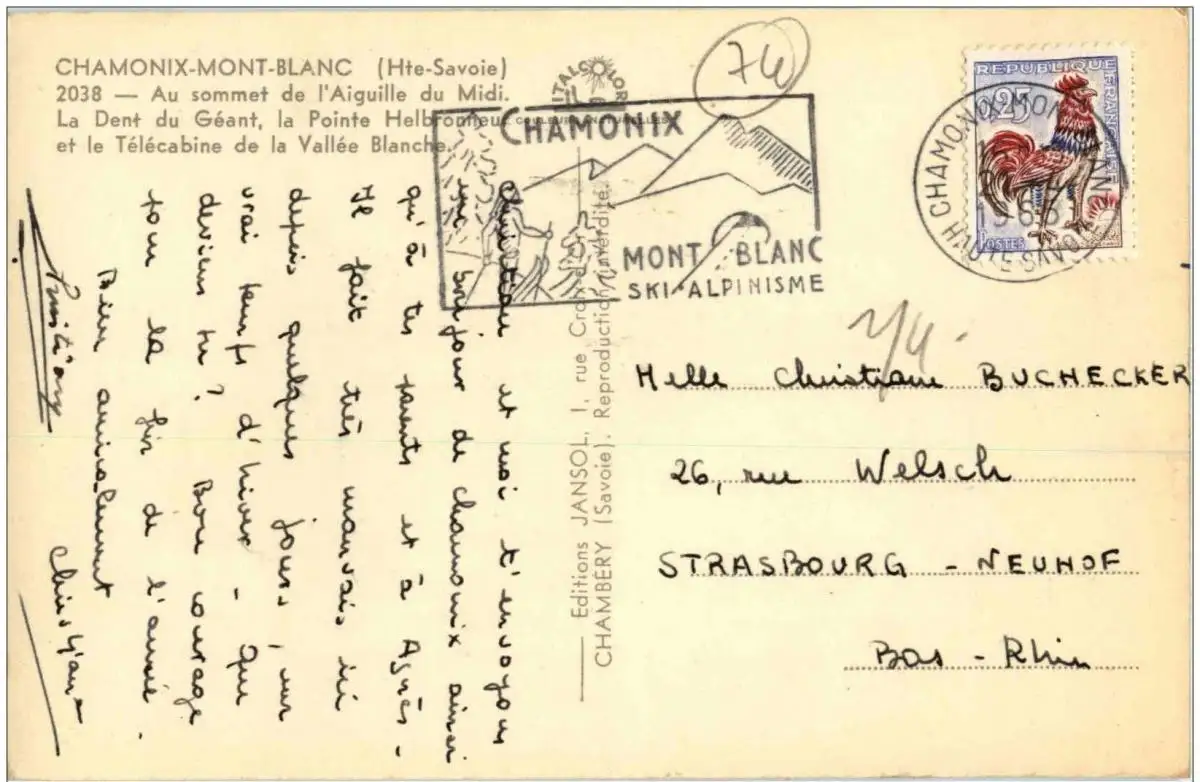 CHAMONIX-MONT-BLANC (Hte-Savoie)
2038 — Au sommet de l'Aiguille du Midi.
La Dent du Géant, la Pointe Helbronner
et le Télécabine de la Vallée Blanche.
ITALCOLOR
COULEURS NATURELLES
74
CHAMONIX
MONT BLANC
SKI-ALPINISME
REPUBLIQUE FRANÇAISE
0,25
POSTES
CHAMONIX MONT BLANC
HAUTE SAVOIE
et moi t'envoyons
un bonjour de chamonix ainsi
qu'à tes parents et à Agnès.
Il fait très mauvais ici
depuis quelques jours, un
vrai temps d'hiver - Que
deviens tu? Bon courage
pour la fin de l'année.
Bien amicalement
Editions JANSOL, 1, rue Croix-d'Or
CHAMBERY (Savoie). Reproduction interdite.
Melle Christiane BUCHECKER
26, rue Welsch
STRASBOURG - NEUHOF
Bas-Rhin